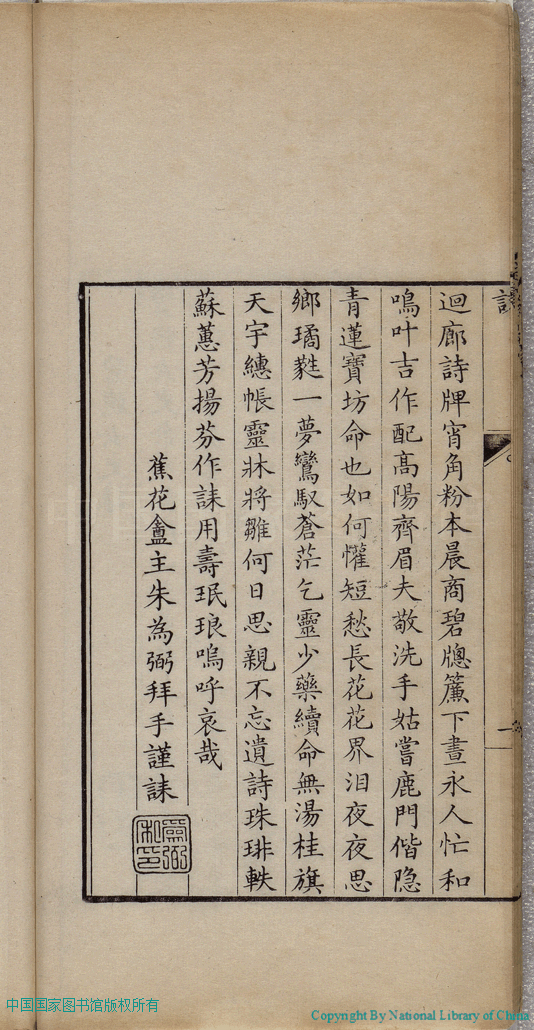 迴廊詩牌宵角粉本晨商碧牕簾下晝永人忙和
鳴叶吉作配髙陽齊眉夫敬洗手姑嘗鹿門偕隐
青蓮寶坊命也如何懽短愁長花花界泪夜夜思
鄉璚甤一夢鸞馭蒼茫乞靈少藥續命無湯桂旗
天宇繐帳靈牀將雛何日思親不忘遺詩珠琲軼
蘇蕙芳揚芬作誄用壽珉琅嗚呼哀哉
蕉花盦主朱為弼拜手謹誄
中国国家图书馆版权所有
Copyright By National Library of China